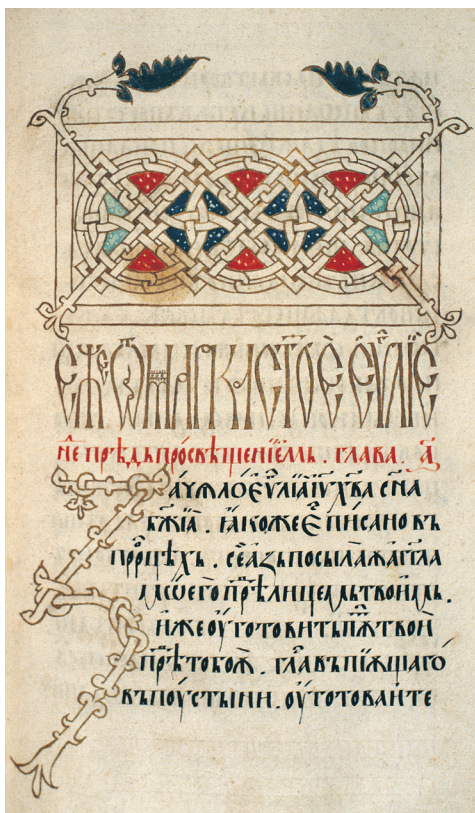 Єже ѿ Марка ст҃ое еѵⷢ҇лїе
нⷣе прѣдьпросвѣщенїемь . глава . а҃
Зачѧло еѵⷢ҇лїа іѵ҃ х҃ва с҃на
б҃жїа . ꙗкоже є писано въ
прⷪ҇рцѣхъ . се азъ посылаѫ агг҃ла
моего прѣⷣ лицемь твоимь .
иже оуготовить пѫⷮ твой
прѣⷣ тобоѫ . глⷭ҇а въпїѫщаго
въ поустыни . оуготоваите